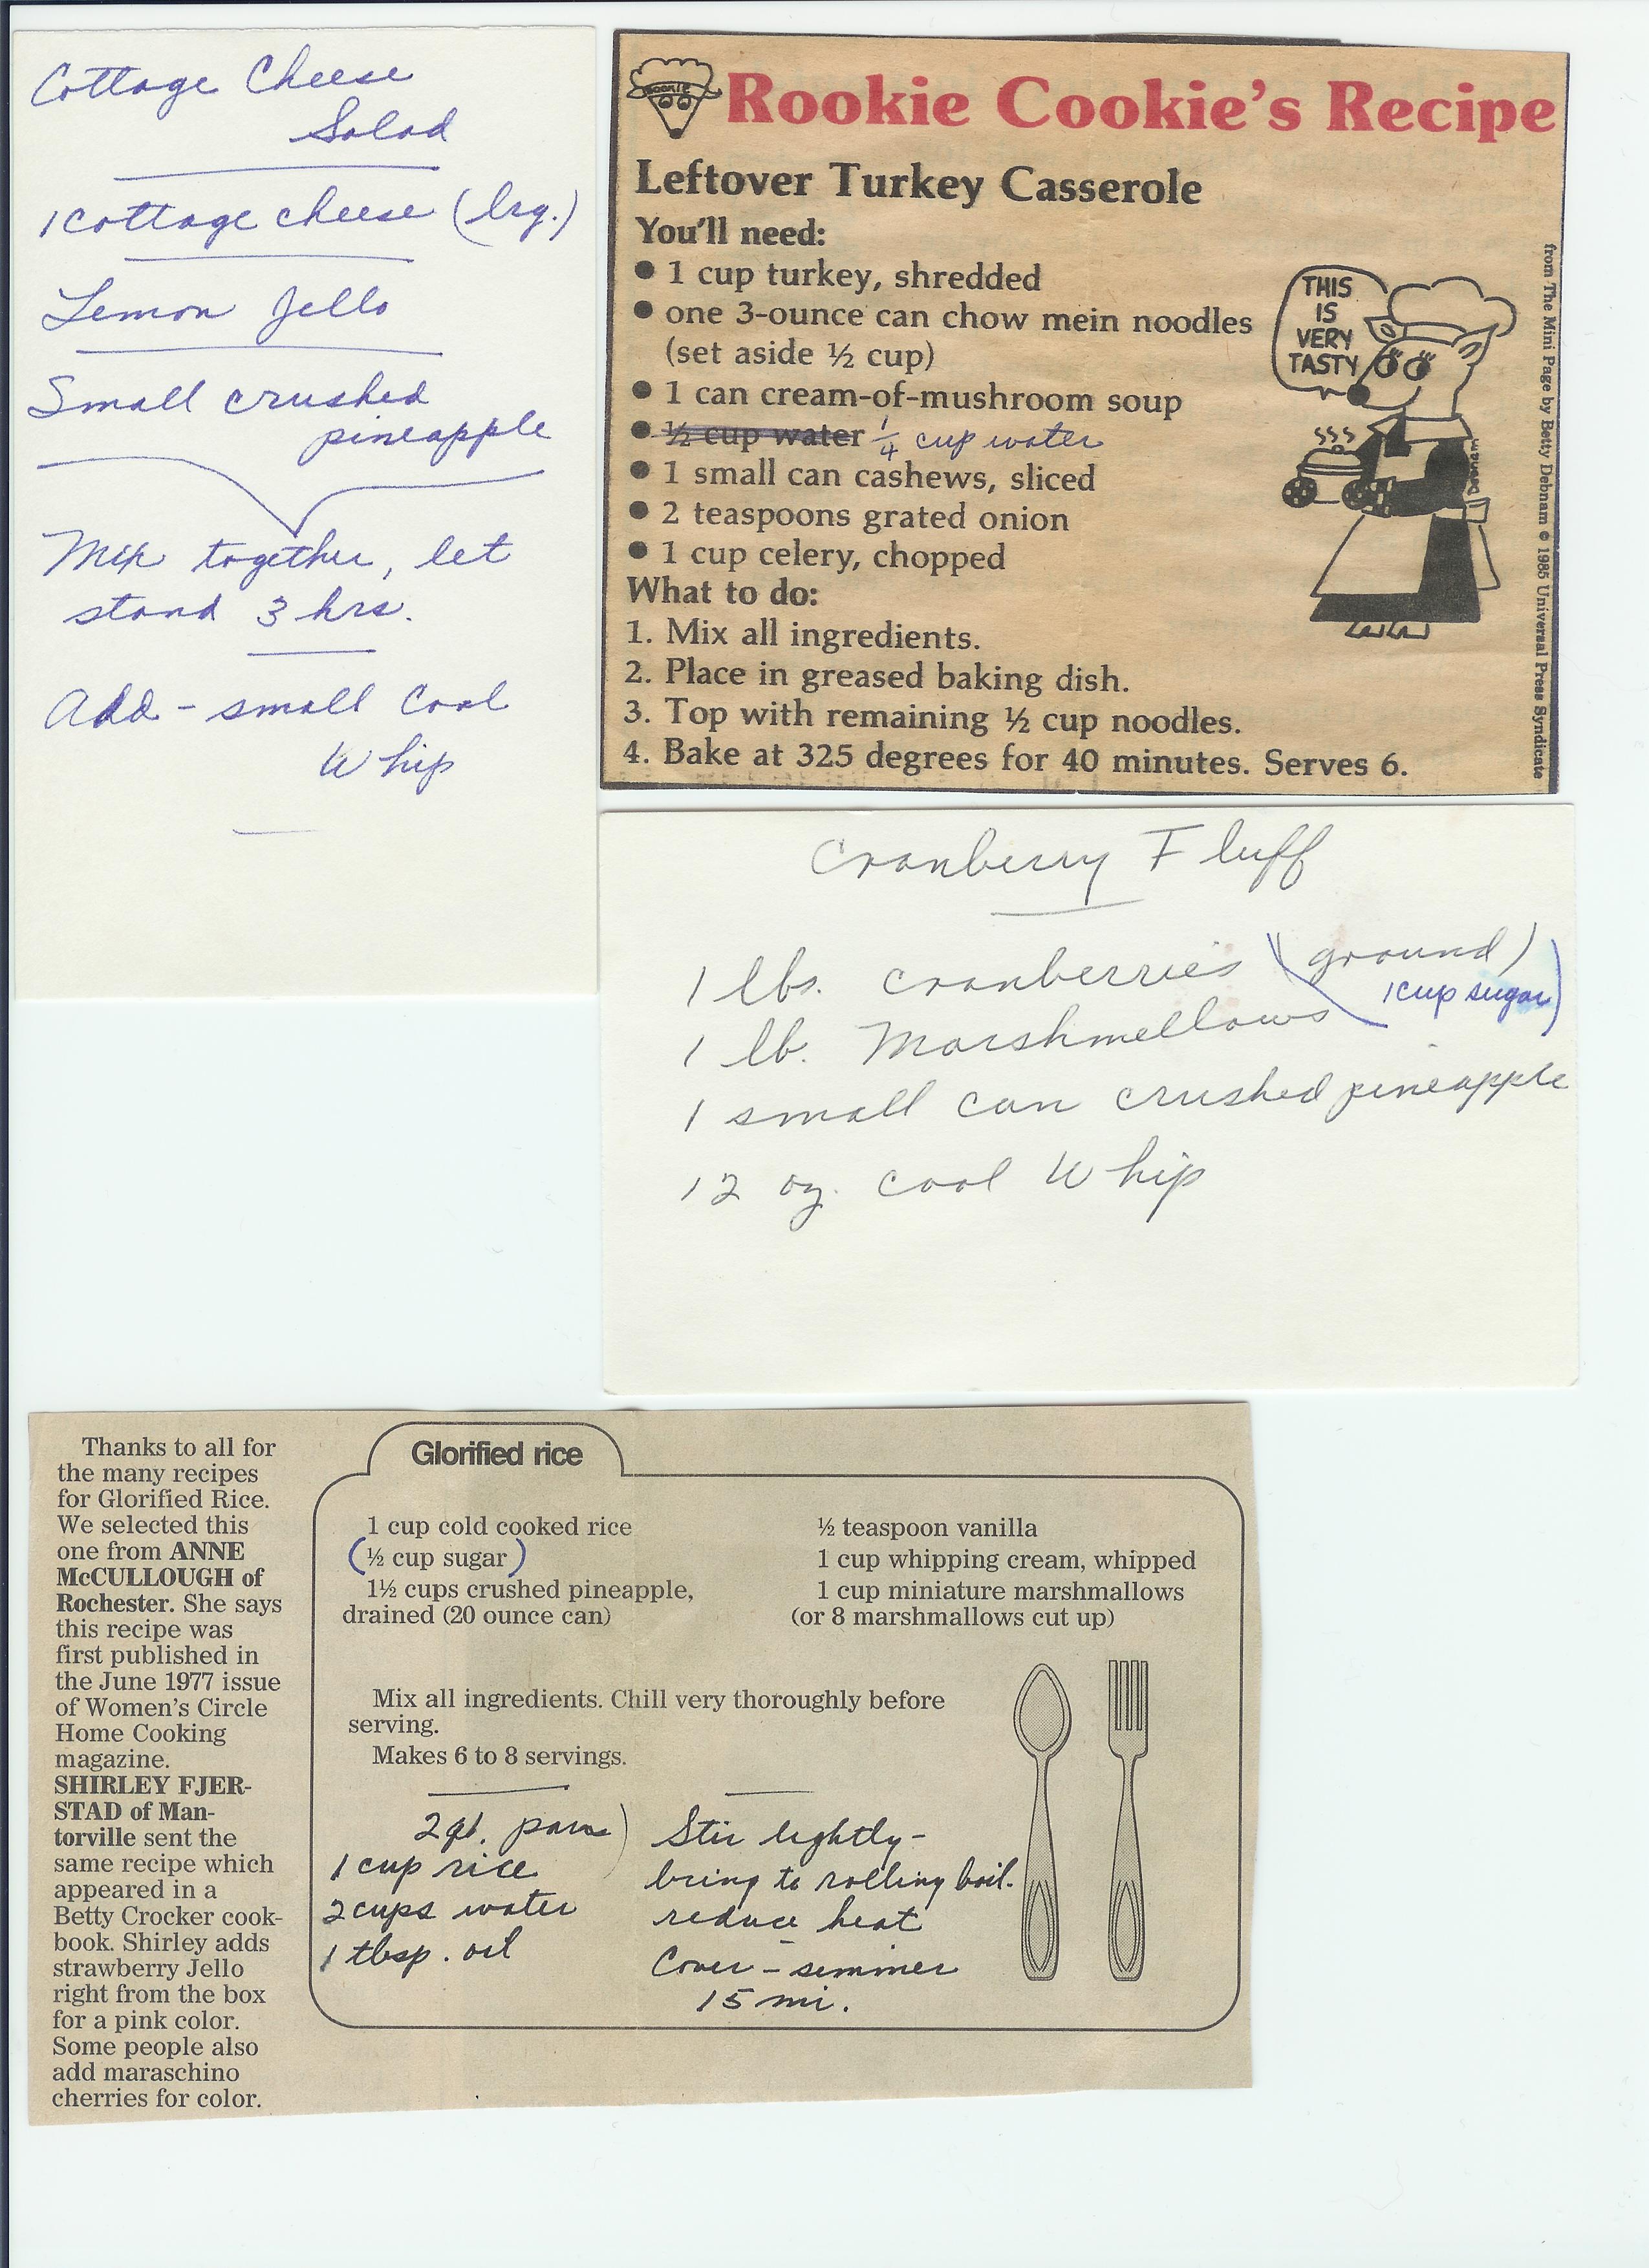 Cottage Cheese
Salad
1 Cottage cheese (lrg.)
Lemon Jello
Small crushed
pineapple
Mix together, let
stand 3 hrs.
Add - small Cool
Whip
ROOKIE
Rookie Cookie's Recipe
Leftover Turkey Casserole
You'll need:
● 1 cup turkey, shredded
● one 3-ounce can chow mein noodles
(set aside ½ cup)
● 1 can cream-of-mushroom soup
● ½ cup water ¼ cup water
● 1 small can cashews, sliced
● 2 teaspoons grated onion
● 1 cup celery, chopped
What to do:
1. Mix all ingredients.
2. Place in greased baking dish.
3. Top with remaining ½ cup noodles.
4. Bake at 325 degrees for 40 minutes. Serves 6.
THIS
IS
VERY
TASTY
Debnam
from The Mini Page by Betty Debnam © 1985 Universal Press Syndicate
Cranberry Fluff
1 lbs. cranberries (ground)
(1 cup sugar)
1 lb. Marshmellows
1 small can crushed pineapple
12 oz. Cool Whip
Thanks to all for
the many recipes
for Glorified Rice.
We selected this
one from ANNE
McCULLOUGH of
Rochester. She says
this recipe was
first published in
the June 1977 issue
of Women's Circle
Home Cooking
magazine.
SHIRLEY FJER-
STAD of Man-
torville sent the
same recipe which
appeared in a
Betty Crocker cook-
book. Shirley adds
strawberry Jello
right from the box
for a pink color.
Some people also
add maraschino
cherries for color.
Glorified rice
1 cup cold cooked rice
(½ cup sugar)
1½ cups crushed pineapple,
drained (20 ounce can)
½ teaspoon vanilla
1 cup whipping cream, whipped
1 cup miniature marshmallows
(or 8 marshmallows cut up)
Mix all ingredients. Chill very thoroughly before
serving.
Makes 6 to 8 servings.
2 qt. pan)
1 cup rice
2 cups water
1 tbsp. oil
Stir lightly-
bring to rolling boil.
reduce heat
Cover - simmer
15 mi.